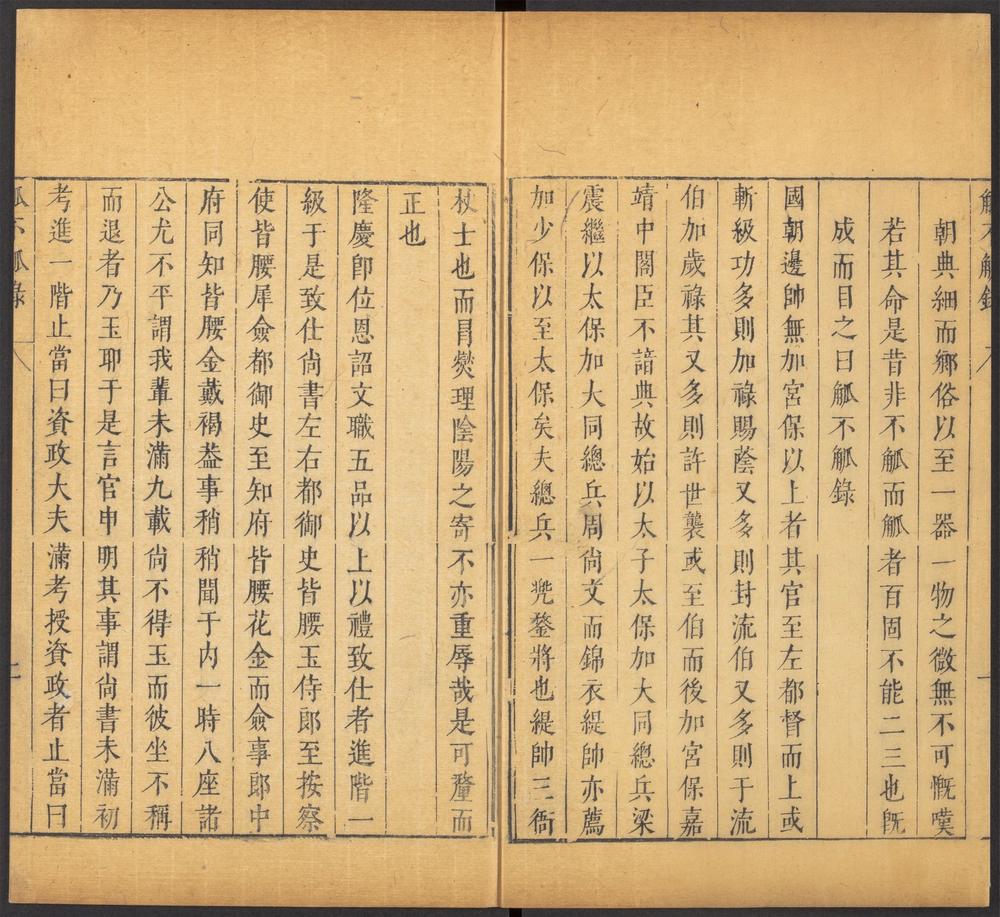 觚不觚錄
朝典細而鄉俗以至一器一物之微無不可慨嘆
若其命是昔非不觚而觚者百固不能二三也旣
成而目之曰觚不觚錄
國朝邊帥無加宮保以上者其官至左都督而上或
斬級功多則加祿賜蔭又多則封流伯又多則于流
伯加歲祿其又多則許世襲或至伯而後加宮保嘉
靖中閣臣不諳典故始以太子太保加大同總兵梁
震繼以太保加大同總兵周尚文而錦衣緹帥亦薦
加少保以至太保矣夫總兵一兠鍪將也緹帥三衙
杖士也而冒爕理陰陽之寄不亦重辱哉是可釐而
正也
隆慶卽位恩詔文職五品以上以禮致仕者進階一
級于是致仕尚書左右都御史皆腰玉侍郎至按察
使皆腰犀僉都御史至知府皆腰花金而僉事郎中
府同知皆腰金戴褐葢事稍稍聞于內一時八座諸
公尤不平謂我輩未滿九載尚不得玉而彼坐不稱
而退者乃玉耶于是言官申明其事謂尚書未滿初
考進一階止當曰資政大夫滿考授資政者止當曰
觚不觚錄